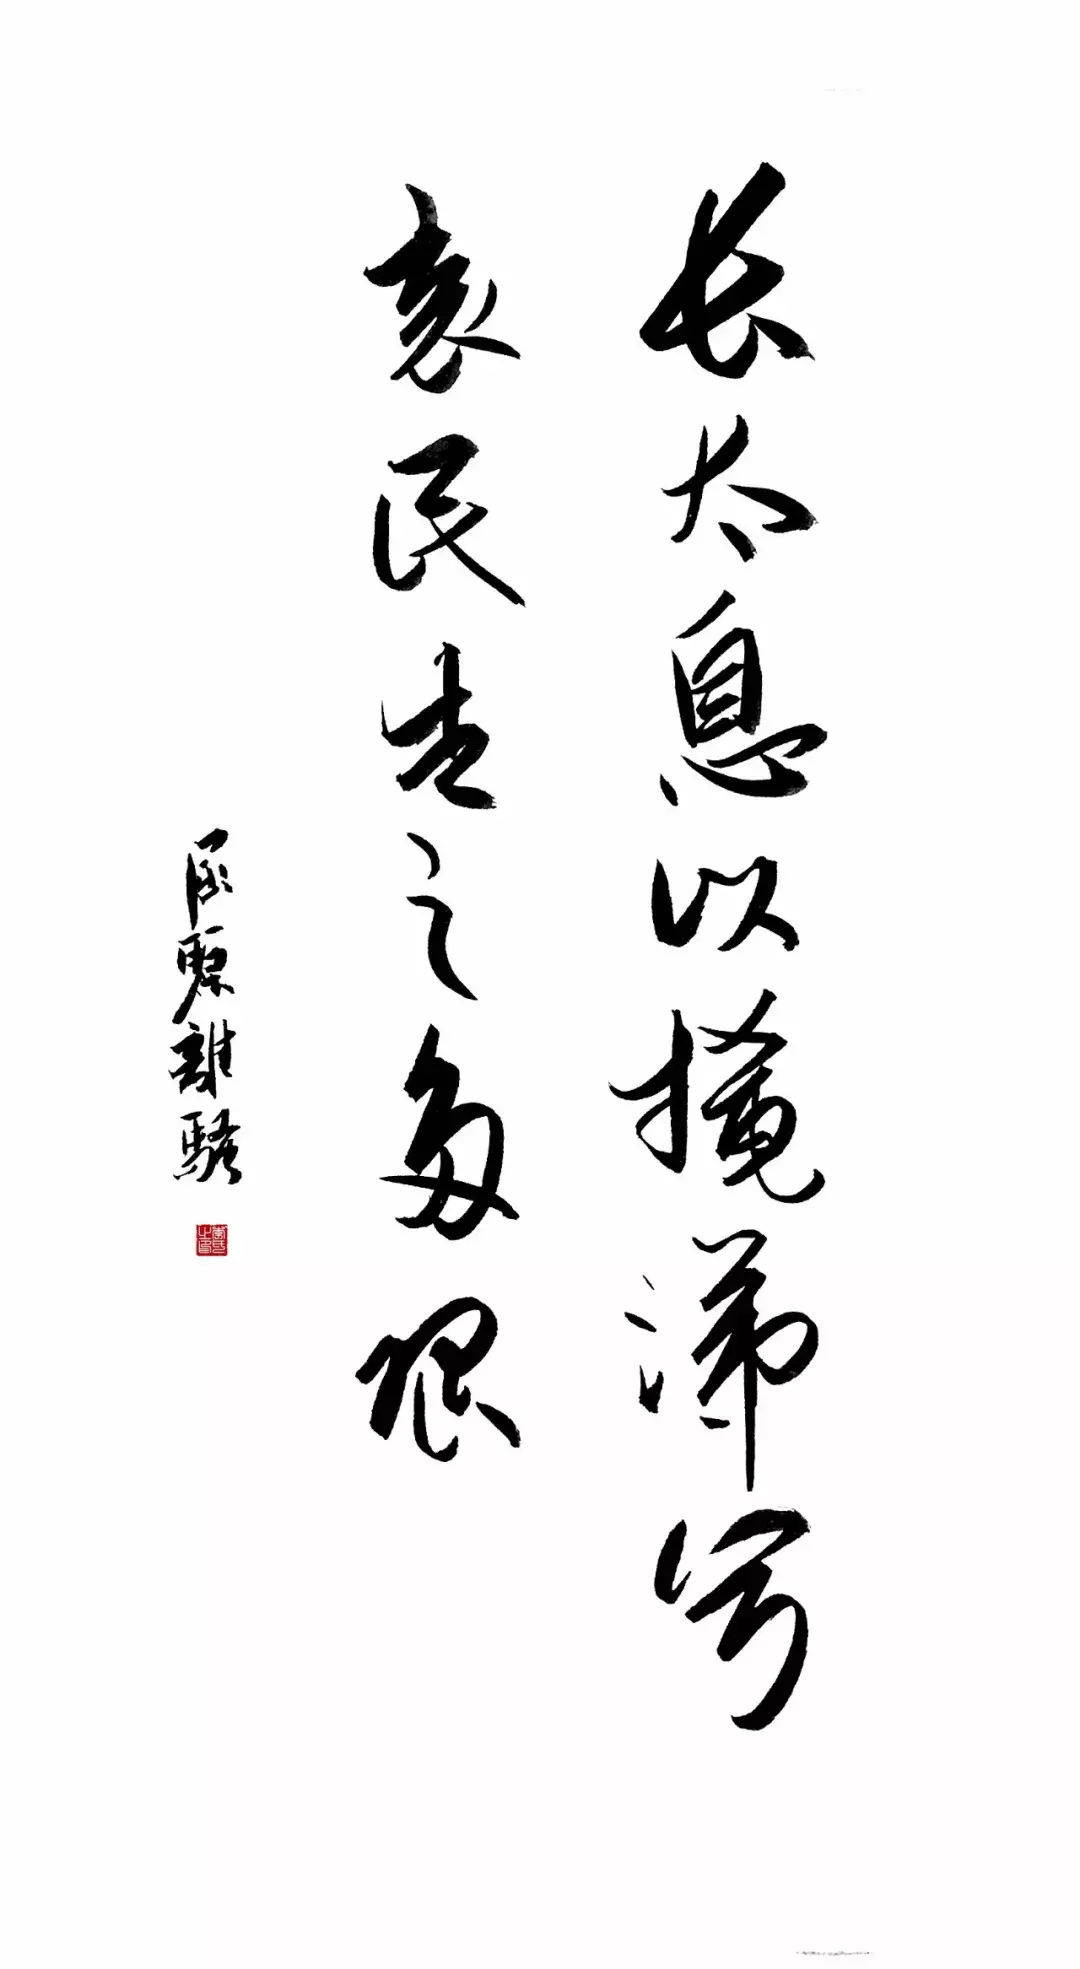 长太息以掩涕兮
哀民生之多艰
屈原離騷